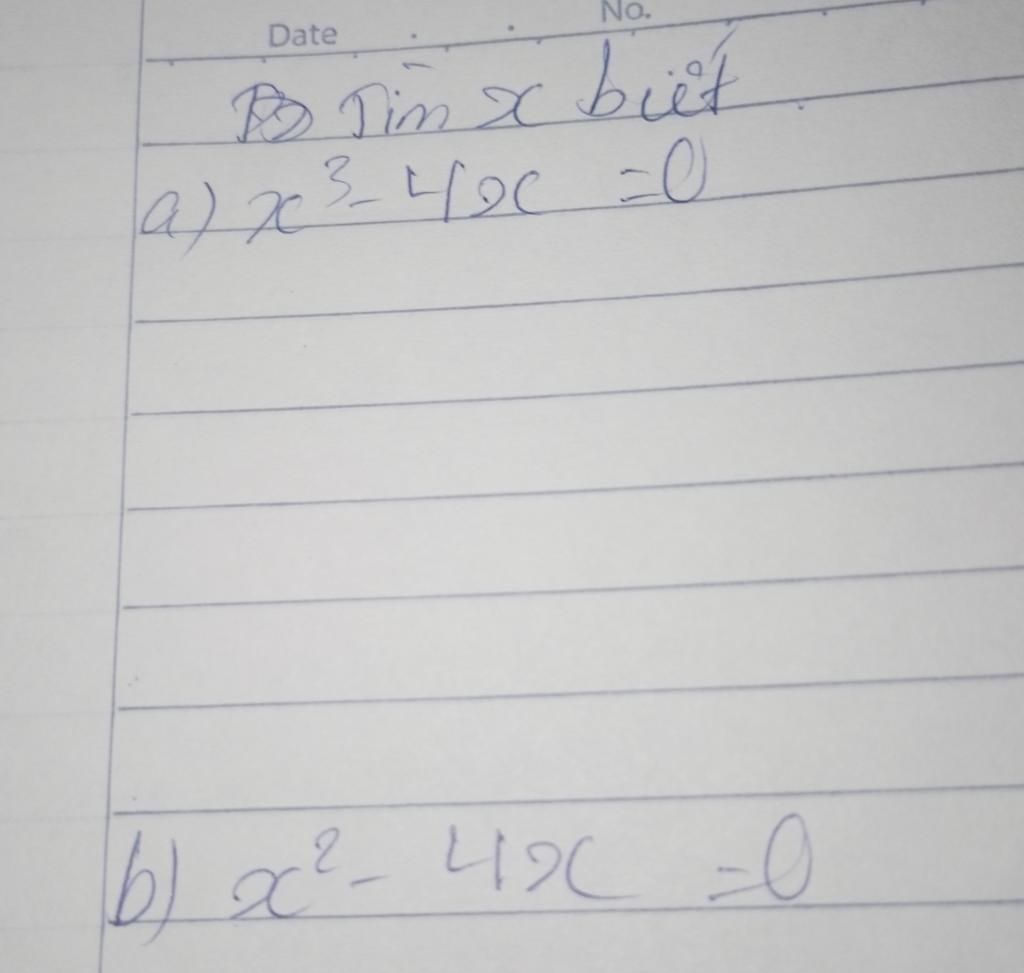 Date No.
Tìm x biết
a) x³ - 4x = 0
b) x² - 4x = 0